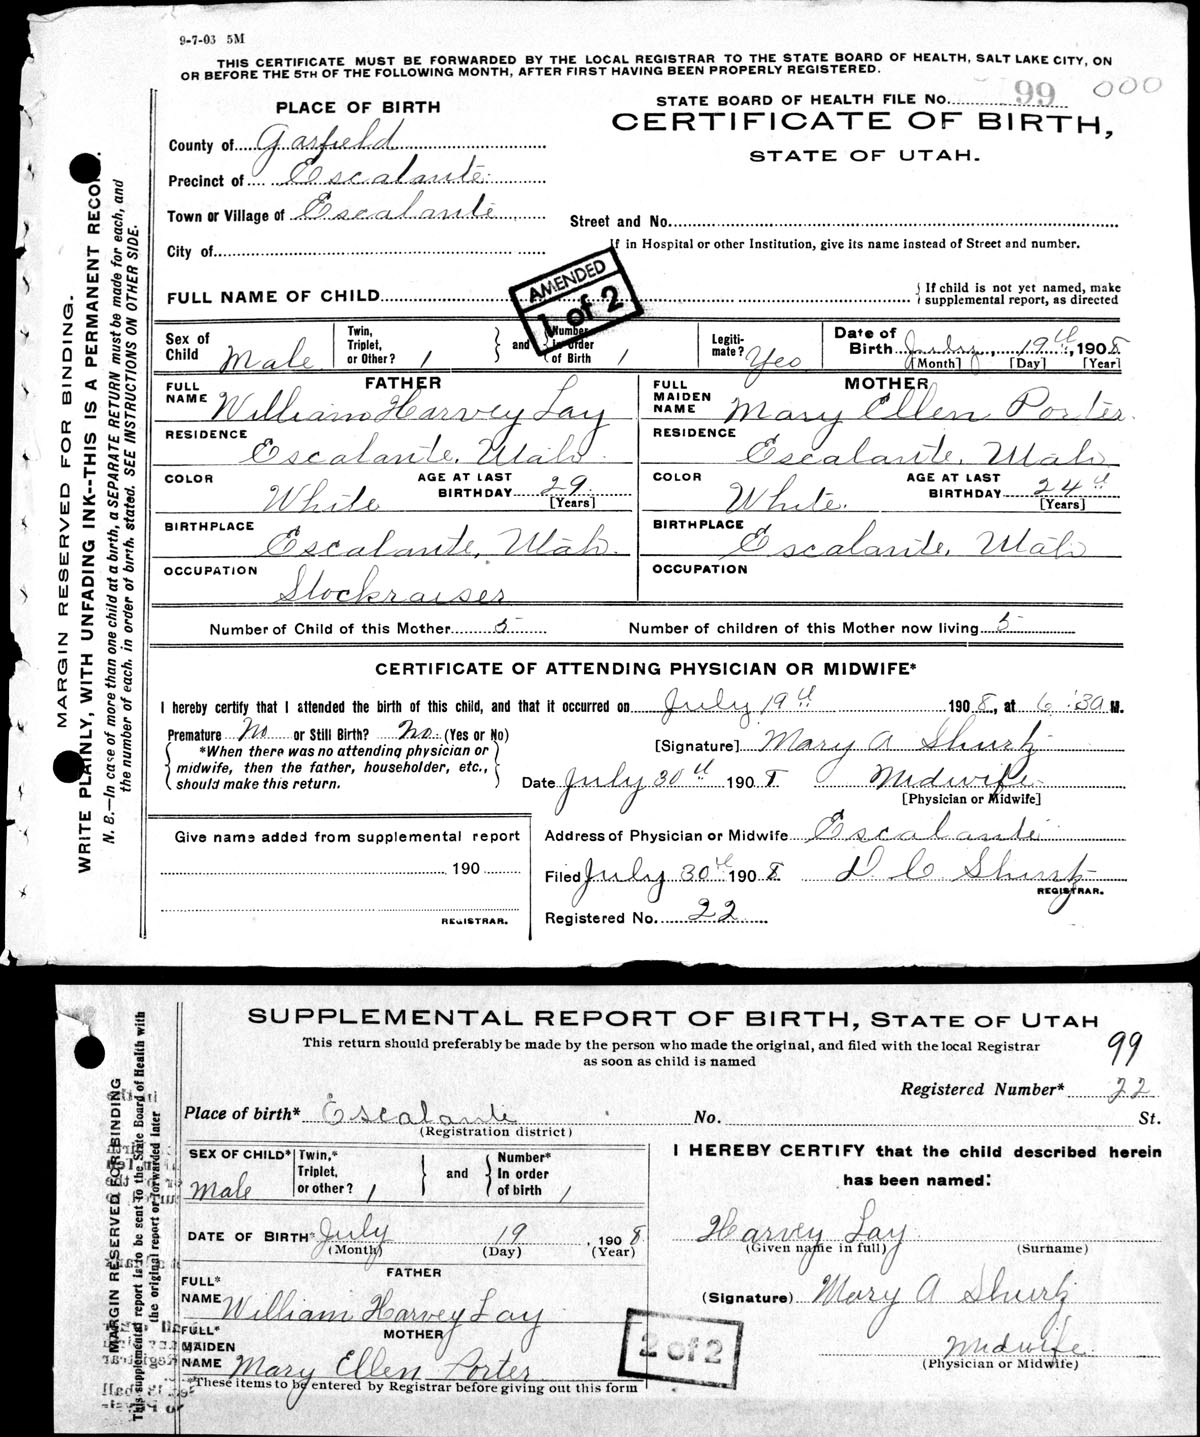 9-7-03 5M
THIS CERTIFICATE MUST BE FORWARDED BY THE LOCAL REGISTRAR TO THE STATE BOARD OF HEALTH, SALT LAKE CITY, ON
OR BEFORE THE 5TH OF THE FOLLOWING MONTH, AFTER FIRST HAVING BEEN PROPERLY REGISTERED.
PLACE OF BIRTH
STATE BOARD OF HEALTH FILE NO. 99 000
CERTIFICATE OF BIRTH,
STATE OF UTAH.
County of Garfield
Precinct of Escalante
Town or Village of Escalante
Street and No.
City of
If in Hospital or other Institution, give its name instead of Street and number.
AMENDED
1 of 2
FULL NAME OF CHILD
If child is not yet named, make
supplemental report, as directed
Sex of Child Male
Twin, Triplet, or Other? 1
and
Number In order of Birth 1
Legitimate? Yes
Date of Birth July 19th, 1908
[Month] [Day] [Year]
FATHER
FULL NAME William Harvey Lay
RESIDENCE Escalante, Utah
COLOR White
AGE AT LAST BIRTHDAY 29 [Years]
BIRTHPLACE Escalante, Utah
OCCUPATION Stockraiser
MOTHER
FULL MAIDEN NAME Mary Ellen Porter
RESIDENCE Escalante, Utah
COLOR White
AGE AT LAST BIRTHDAY 24 [Years]
BIRTHPLACE Escalante, Utah
OCCUPATION
Number of Child of this Mother 5
Number of children of this Mother now living 5
CERTIFICATE OF ATTENDING PHYSICIAN OR MIDWIFE*
I hereby certify that I attended the birth of this child, and that it occurred on July 19th 1908, at 6:30 M.
Premature No or Still Birth? No (Yes or No)
*When there was no attending physician or
midwife, then the father, householder, etc.,
should make this return.
[Signature] Mary A Shurtz
Date July 30th 1908 Midwife
[Physician or Midwife]
Give name added from supplemental report
190
REGISTRAR.
Address of Physician or Midwife Escalante
Filed July 30th 1908 D C Shurtz
REGISTRAR.
Registered No. 22
MARGIN RESERVED FOR BINDING.
WRITE PLAINLY, WITH UNFADING INK--THIS IS A PERMANENT RECO
N. B.—In case of more than one child at a birth, a SEPARATE RETURN must be made for each, and
the number of each, in order of birth, stated. SEE INSTRUCTIONS ON OTHER SIDE.
SUPPLEMENTAL REPORT OF BIRTH, STATE OF UTAH
This return should preferably be made by the person who made the original, and filed with the local Registrar
as soon as child is named
99
Registered Number* 22
Place of birth* Escalante No. St.
(Registration district)
SEX OF CHILD* Male
Twin,* Triplet, or other? 1
and
Number* In order of birth 1
DATE OF BIRTH* July 19, 1908
(Month) (Day) (Year)
FATHER
FULL* NAME William Harvey Lay
MOTHER
FULL* MAIDEN NAME Mary Ellen Porter
*These items to be entered by Registrar before giving out this form
I HEREBY CERTIFY that the child described herein
has been named:
Harvey Lay
(Given name in full) (Surname)
(Signature) Mary A Shurtz
Midwife
(Physician or Midwife)
2 of 2
MARGIN RESERVED FOR BINDING
This supplemental report is to be sent to the State Board of Health with
the original report or forwarded later